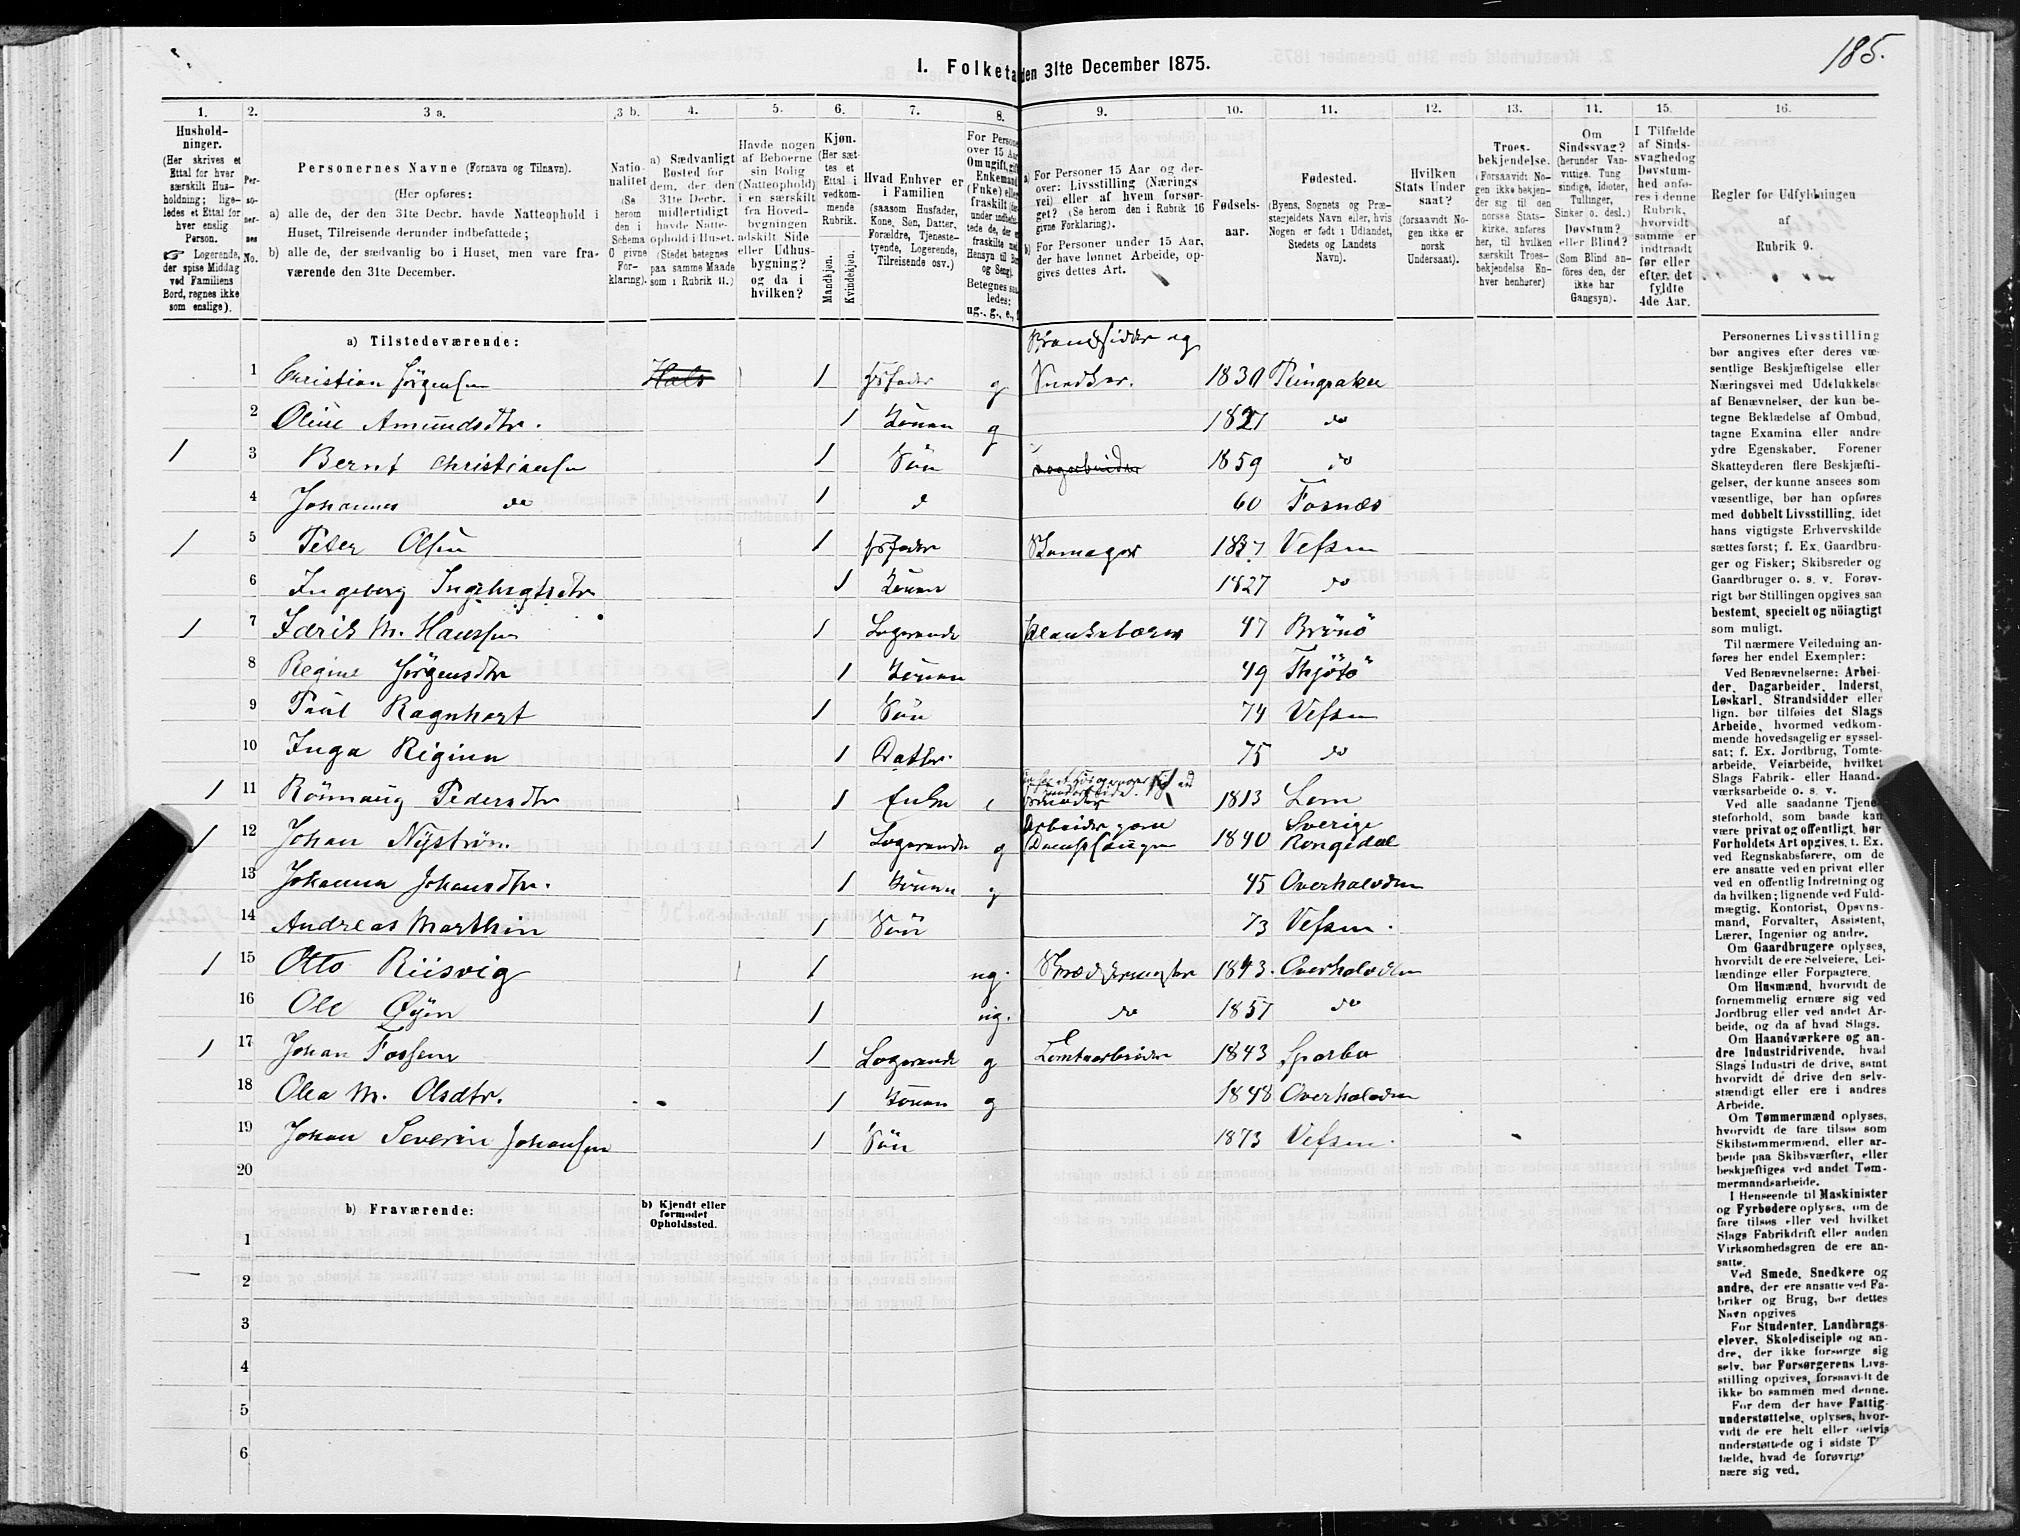 185.
I. Folketa den 31te December 1875.
1. 2. 3 a. 3 b. 4. 5. 6. 7. 8. 9. 10. 11. 12. 13. 14. 15. 16.
Hushold-
ninger.
(Her skrives et
Ettal for hver
særskilt Hus-
holdning; lige-
ledes et Ettal for
hver enslig
Person.
☞ Logerende,
der spise Middag
ved Familiens
Bord, regnes ikke
som enslige).
Per-
so-
ner-
nes
No.
Personernes Navne (Fornavn og Tilnavn).
(Her opføres:
a) alle de, der den 31te Decbr. havde Natteophold i
Huset, Tilreisende derunder indbefattede;
b) alle de, der sædvanlig bo i Huset, men vare fra-
værende den 31te December.
Natio-
nalitet
(Se
herom
den i
Schema
O givne
For-
klaring).
a) Sædvanligt
Bosted for
dem, der den
31te Decbr.
midlertidigt
havde Natte-
ophold i Huset.
(Stedet betegnes
paa samme Maade
som i Rubrik 11.)
Havde nogen
af Beboerne
sin Bolig
(Natteophold)
i en særskilt
fra Hoved-
bygningen
adskilt Side
eller Udhus-
bygning?
og da i
hvilken?
Kjøn.
(Her sæt-
tes et
Ettal i
vedkom-
mende
Rubrik.
Mandkjøn.
Kvindekjøn.
Hvad Enhver er
i Familien
(saasom Husfader,
Kone, Søn, Datter,
Forældre, Tjeneste-
tyende, Logerende,
Tilreisende osv.)
For Persone
over 15 Aar
Om ugift, gift
Enkemand
(Enke) elle
fraskilt
Betegnes saa
ledes:
ug., g., e., f
a) For Personer 15 Aar og der-
over: Livsstilling (Nærings
vei) eller af hvem forsør-
get? (Se herom den i Rubrik 16
givne Forklaring).
b) For Personer under 15 Aar,
der have lønnet Arbeide, op-
gives dettes Art.
Fødsels-
aar.
Fødested.
(Byens, Sognets og Præ-
stegjeldets Navn eller, hvis
Nogen er født i Udlandet,
Stedets og Landets
Navn).
Hvilken
Stats Under
saat?
(forsaavidt No-
gen ikke er
norsk
Undersaat).
Troes-
bekjendelse.
(Forsaavidt No
gen ikke bekjen-
der sig til den
norske Stats-
kirke, anføres
her, til hvilken
særskilt Troes-
bekjendelse En-
hver henhører)
Om
Sindssvag?
(herunder Van-
vittige, Tung
sindige, Idioter,
Tullinger,
Sinker o. desl.)
Døvstum?
eller Blind?
(Som Blind an-
føres den, der
ikke har
Gangsyn).
I Tilfælde
af Sinds-
svaghedog
Døvstum-
hed anfø-
res i denne
Rubrik,
hvorvidt
samme er
indtraadt
før eller
efter det
fyldte
4de Aar.
Regler for Udfyldningen
af
Rubrik 9.
a) Tilstedeværende:
1 Christian Jörgensen Hals 1 Hsfader g Strandsidder og Snedker. 1830 Tingvaken
2 Oline Amundsdtr. 1 Konen g 1827 do
1 3 Bernt Christiansen 1 Sön 1859 do
4 Johannes do 1 d 60 Fosnæs
1 5 Peter Olsen 1 Hsfader Skomager 1827 Vefsen
6 Ingeborg Ingebrigtsdtr 1 Konen 1827 do
1 7 Idrik M. Hanssen 1 Logerende Plankebærer 47 Brönö
8 Regine Jörgensdtr 1 Konen 49 Thjötö
9 Paul Ragnhart 1 Sön 74 Vefsen
10 Inga Regina 1 Datter. 75 do
1 11 Rönnaug Pedersdtr 1 Enke 1813 Lom
1 12 Johan Nyström 1 Logerende g Arbeider paa Dampsaugen 1840 Sverige
13 Johanna Johansdtr. 1 Konen g 45 Overhalvden
14 Andreas Marthin 1 Sön 73 Vefsen.
1 15 Otto Riisvig 1 ug. Skrædermester 1843. Overhalvden
16 Ole Øyen 1 ug. do 1857 do
1 17 Johan Fossem 1 Logerende g Tomtearbeider 1843 Sparbo
18 Olea M. Olsdtr. 1 Konen g 1848 Overhalvden
19 Johan Severin Johansen 1 Sön 1873 Vefsen.
20
b) Fraværende:
b) Kjendt eller
formodet
Opholdssted.
1
2
3
4
5
6
Personernes Livsstilling
bør angives efter deres væ-
sentlige Beskjæftigelse eller
Næringsvei med Udelukkelse
af Benævnelser, der kun be-
tegne Beklædelse af Ombud,
tagne Examina eller andre
ydre Egenskaber. Forener
Skatteyderen flere Beskjæfti-
gelser, der kunne ansees som
væsentlige, bør han opføres
med dobbelt Livsstilling, idet
hans vigtigste Erhvervskilde
sættes først; f. Ex. Gaardbru-
ger og Fisker; Skibsreder og
Gaardbruger o. s. v. Forøv-
rigt bør Stillingen opgives saa
bestemt, specielt og nöiagtigt
som muligt.
Til nærmere Veiledning an-
føres her endel Exempler:
Ved Benævnelserne: Arbei-
der, Dagarbeider, Inderst,
Løskarl, Strandsidder eller
lign. bør tilføies det Slags
Arbeide, hvormed vedkom-
mende hovedsagelig er syssel-
sat; f. Ex. Jordbrug, Tomte-
arbeide, Veiarbeide, hvilket
Slags Fabrik- eller Haand-
værksarbeide o. s. v.
Ved alle saadanne Tjene-
steforhold, som baade kan
være privat og offentligt, bør
Forholdets Art opgives, t. Ex.
ved Regnskabsførere, om de
ere ansatte ved en privat eller
ved en offentlig Indretning og
da hvilken; lignende ved Fuld-
mægtig, Kontorist, Opsyns-
mand, Forvalter, Assistent,
Lærer, Ingeniør og andre.
Om Gaardbrugere oplyses,
hvorvidt de ere Selveiere, Lei-
lændinge eller Forpagtere.
Om Husmænd, hvorvidt de
fornemmelig ernære sig ved
Jordbrug eller ved andet Ar-
beide, og da af hvad Slags.
Om Haandværkere og an-
dre Industridrivende, hvad
Slags Industri de drive, samt
hvorvidt de drive den selv-
stændigt eller ere i andres
Arbeide.
Om Tømmermænd oplyses,
hvorvidt de fare tilsøs som
Skibstømmermænd, eller ar-
beide paa Skibsværfter, eller
beskjæftiges ved andet Tøm-
mermandsarbeide.
I Henseende til Maskinister
og Fyrbødere oplyses, om de
fare tilsøs eller ved hvilket
Slags Fabrikdrift eller anden
Virksomhedsgren de ere an-
satte.
Ved Smede, Snedkere og
andre, der ere ansatte ved Fa-
briker og Brug, bør dettes
Navn opgives
For Studenter, Landbrugs-
elever, Skoledisciple og an-
dre, der ikke forsørge sig
selv, bør Forsørgerens Livs-
stilling opgives, forsaavidt de
ikke bo sammen med denne.
For dem der have Fattig-
understøttelse, oplyses, hvor-
vidt de ere helt eller delvis
understøttede og i sidste T
fælde, hvad de forøvrigt
nære sig ved.